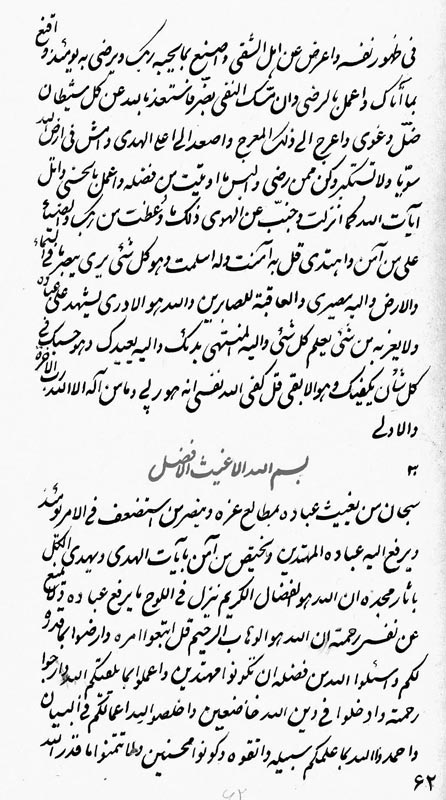 فی ظهور نفسه واعرض عن اهل الشقی و اصنع بما یحبه ربک ویرضی به یومئذ و اقنع
بما آتاک واعمل بالرضی وان مسک النفی بضر فاستعذ بالله عن کل شیطان
ضل وغوی واعرج الی ذلک المعرج واصعد الی اعلی الهدی وامش فی ارض الله
سویا ولا تستکبر وکن ممن رضی والبس ما اوتیت من فضله واعمل بالحسنی واتل
آیات الله کما انزلت وجنب عن الهوی ذلک ما وعظت من ربک
علی من آمن واهتدی قل به آمنت وله اسلمت وهو کل شئی یری بیصر ما فی السماء
والارض والیه مصیری والعاقبة للصابرین والله هو الادری یشهد علی عباده
ولا یعزب من شئی یعلم کل شئی والیه المنتهی بدئک والیه یعیدک وهو حسبک فی
کل شأن یکفیک وهو الابقی قل کفی الله نفسی انه هو ربی وما من آله الا الله رب الاخرة
والاولی
۳ بسم الله الاغیث الافضل
سبحان من یغیث عباده بمطالع عزه وینصر من استضعف فی الامر یومئذ
ویرفع الیه عباده المهتدین ویختص من آمن بآیات الهدی ویهدی الکل
بآثار مجده ان الله هو الفضال الکریم ینزل فی اللوح ما یرفع عباده
عن نفس رحمته ان الله هو الوهاب الرحیم قل اتبعوا امره وارضوا بما قدر
لکم واسئلوا الله من فضله ان تکونوا مهتدین واعملوا بما یلقیکم الله وارجوا
رحمته وادخلوا فی دین الله خاضعین واخلصوا لله اعمالکم فی البیان
واحمدوا الله بما علمکم سبیله واتقوه وکونوا محسنین ولا تتمنوا ما قدر الله
۶۲